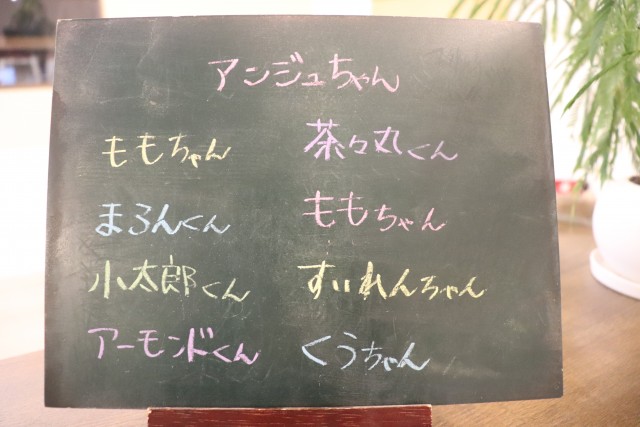 アンジュちゃん
ももちゃん
茶々丸くん
まろんくん
ももちゃん
小太郎くん
すいれんちゃん
アーモンドくん
くうちゃん